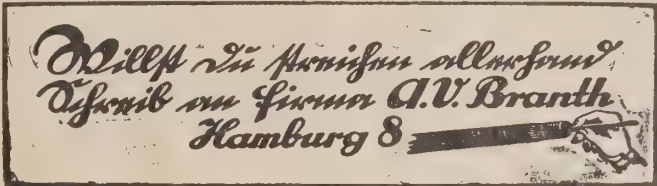 Willst Du streichen allerhand
Schreib an Firma A.V. Branth
Hamburg 8